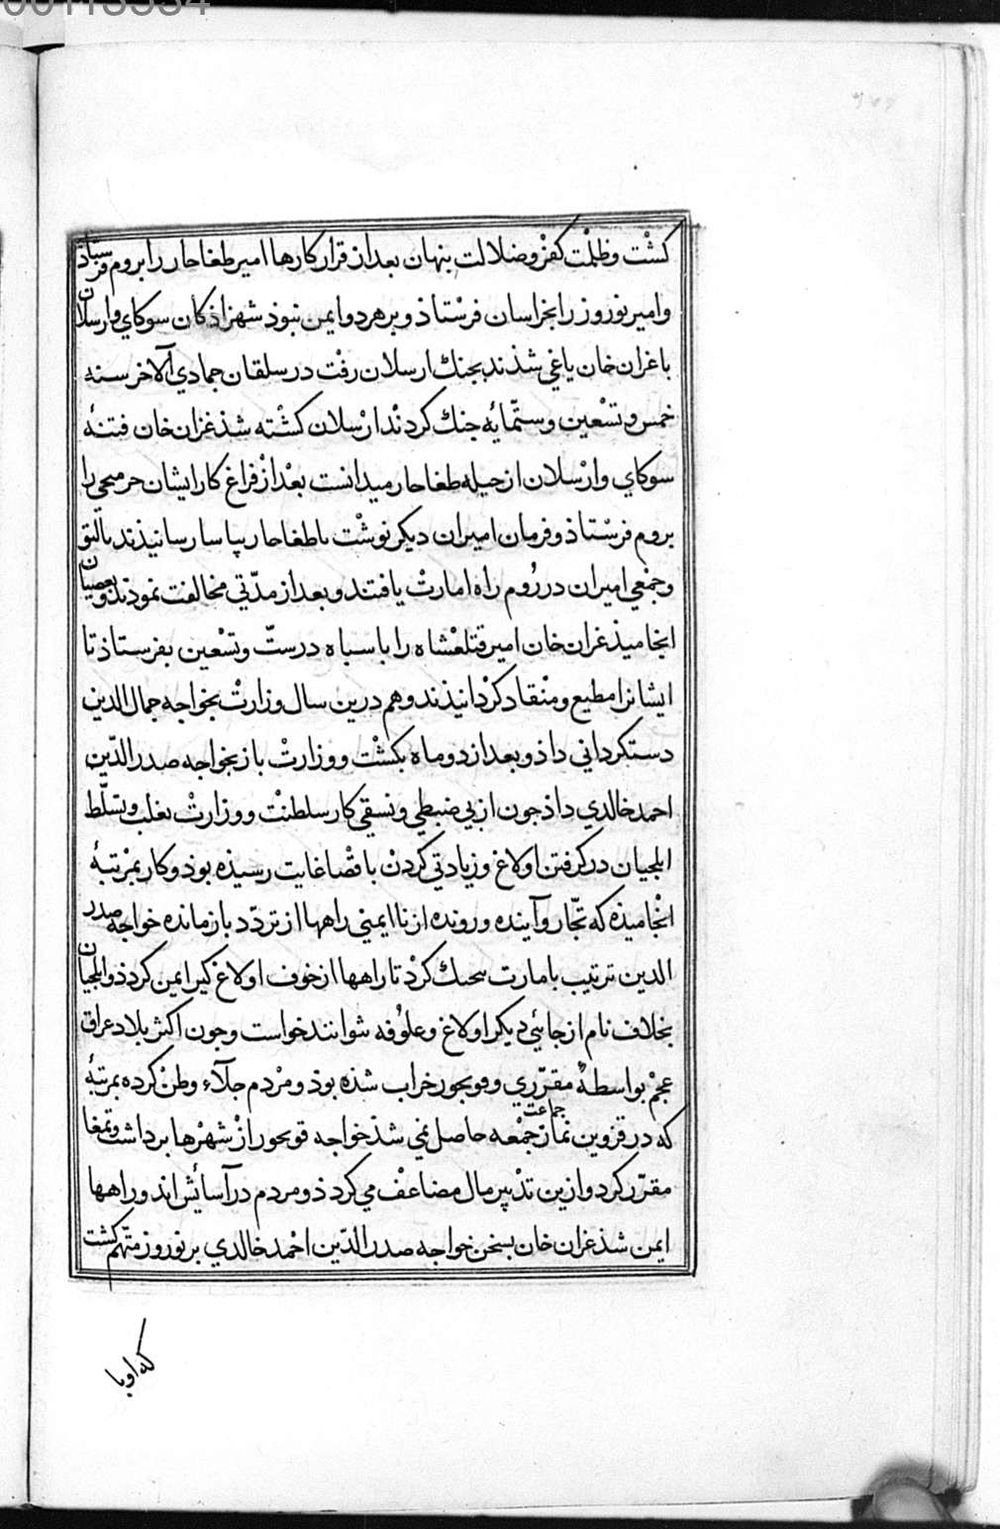 00113534
كشت و ظلمت كفر و ضلالت پنهان بعد از قرار كارها امير طغاحار را بروم فرستاذ
و امير نوروز را بخراسان فرستاذ و بر هر دو ايمن نبوذ شهزاذكان سوكاي و ارسلان
با غزان خان ياغي شذند بجنك ارسلان رفت در سلقان جمادي الآخر سنه
خمس و تسعين و ستمايه جنك كردند ارسلان كشته شذ غزان خان فتنهٔ
سوكاي و ارسلان از حيله طغاحار ميدانست بعد از فراغ كار ايشان حرمجي را
بروم فرستاذ و فرمان اميران ديكر نوشت با طغاحار بياسا رسانيذند بالتو
و جمعي اميران در روم راه امارت يافتند و بعد از مدتي مخالفت نموذند و بعصيان
انجاميذ غزان خان امير قتلغشاه را با سپاه درست و تسعين بفرستاذ تا
ايشانرا مطيع و منقاد كردانيذند و هم درين سال وزارت بخواجه جمال الدين
دستكرداني داذ و بعد از دو ماه بكشت و وزارت باز بخواجه صدر الدين
احمد خالدي داذ جون از بي ضبطي و نسقي كار سلطنت و وزارت بغلب و تسلط
ايلجيان در كرفتن اولاغ و زيادتي كردن با قصا غايت رسيذه بوذ و كار بمرتبهٔ
انجاميذه كه تجار و آينده و رونده از نا ايمني راهها از تردد باز مانده خواجه صدر
الدين ترتيب بامارت كرد تا راهها از خوف اولاغ كير ايمن كردذ و ايلجيان
بخلاف نام از جائي ديكر اولاغ و علوفه نتوانند خواست و جون اكثر بلاد عراق
عجم بواسطهٔ مقرري و قوبجور خراب شذه بوذ و مردم جلاء وطن كرده بمرتبهٔ
كه در قزوين نماز جمعه جماعت حاصل نمي شذ خواجه قوبجور از شهرها برداشت و تمغا
مقرر كرد و ازين تدبير مال مضاعف مي كردذ و مردم در آسايش اند و راهها
ايمن شذ غزان خان بسخن خواجه صدر الدين احمد خالدي بر نوروز متهم كشت
كه او با